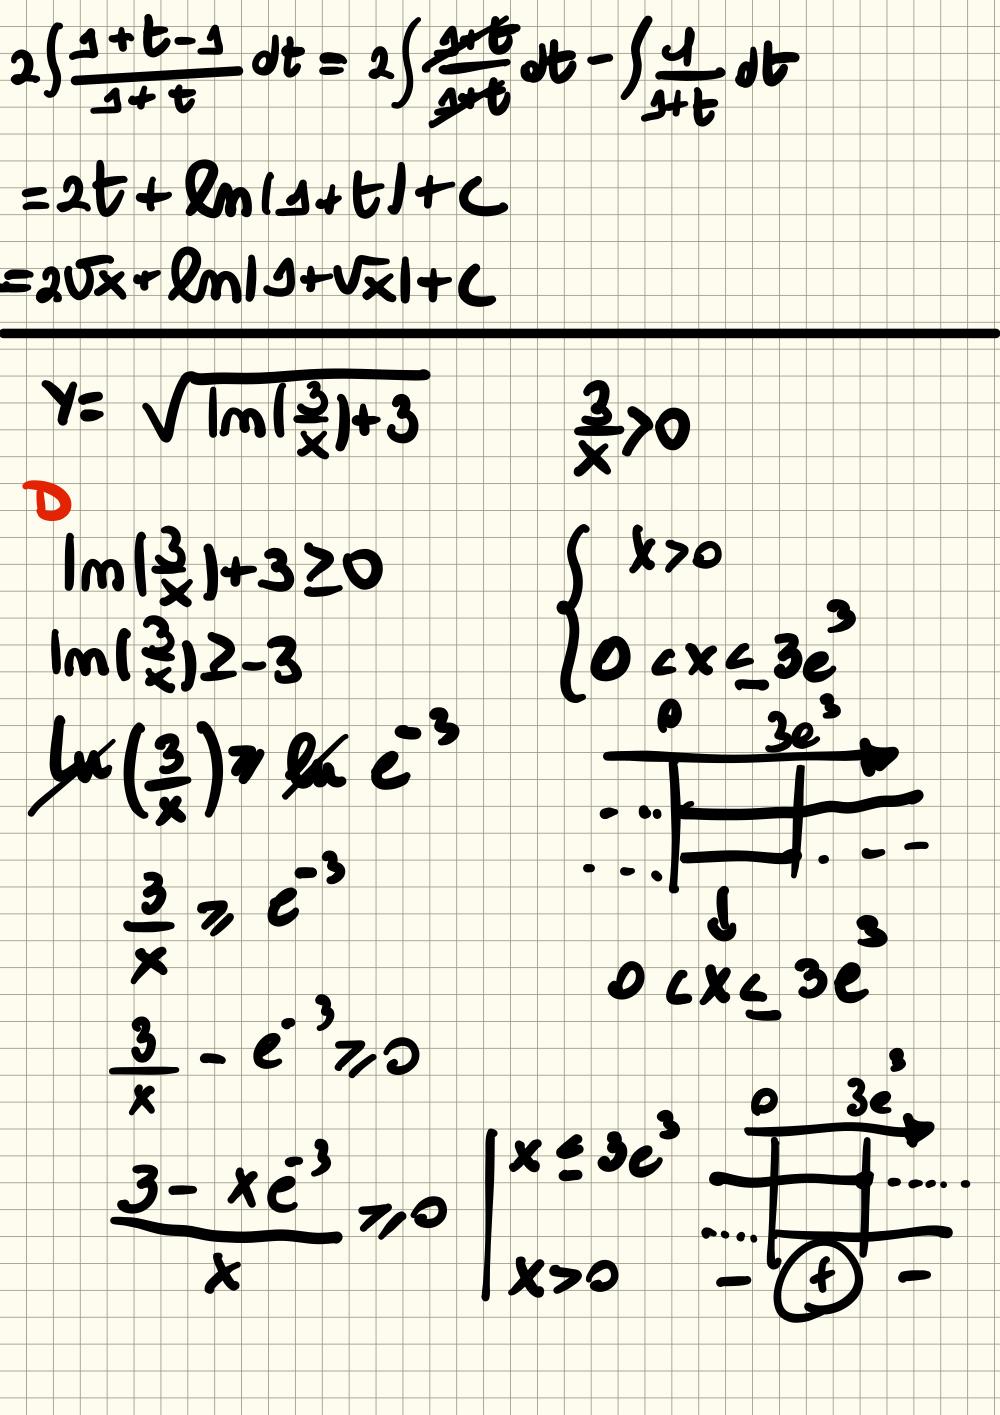 2∫ (1+t-1)/(1+t) dt = 2∫ (1+t)/(1+t) dt - ∫ 1/(1+t) dt
= 2t + ln|1+t| + C
= 2√x + ln|1+√x| + C
Y = √(ln(3/x)+3)
3/x > 0
D
ln(3/x)+3 ≥ 0
ln(3/x) ≥ -3
ln(3/x) ≥ ln e^-3
3/x ≥ e^-3
3/x - e^-3 ≥ 0
(3 - xe^-3)/x ≥ 0
{ x > 0
0 < x ≤ 3e^3
0 3e^3
↓
0 < x ≤ 3e^3
x ≤ 3e^3
x > 0
0 3e^3
- + -